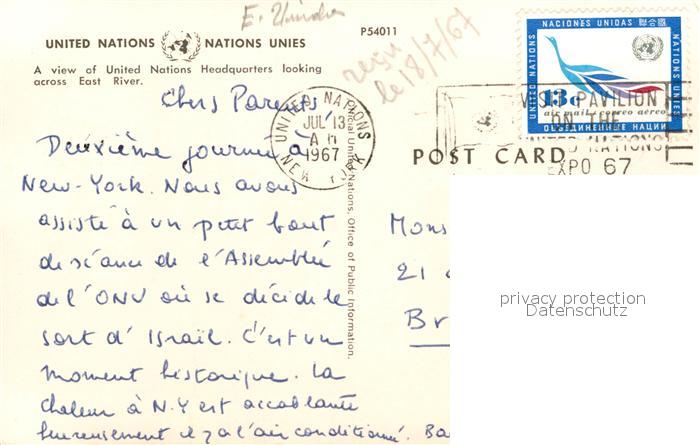 E.
P54011
UNITED NATIONS NATIONS UNIES
A view of United Nations Headquarters looking
across East River.
reçu
le 18/7/67
UNITED NATIONS
NEW YORK
JUL 13
A M
1967
UNITED NATIONS
NACIONES UNIDAS 聯合國
NATIONS UNIES
13c
air mail correo aéreo
ОБЪЕДИНЕННЫЕ НАЦИИ
VISIT PAVILION
ON THE
UNITED NATIONS
EXPO 67
POST CARD
Official United Nations, Office of Public Information.
Chers Parents,
Deuxième journée à
New-York. Nous avons
assisté à un petit bout
de séance de l'Assemblée
de l'ONU où se décide le
sort d'Israël. C'est un
moment historique. La
chaleur à N.Y est accablante
heureusement il y a l'air conditionné. Ba
Mons
21
Br
privacy protection
Datenschutz